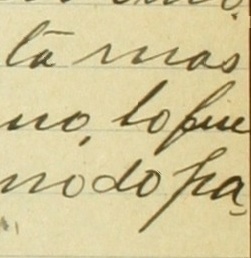 ta mas
no, lo fue
modo pa